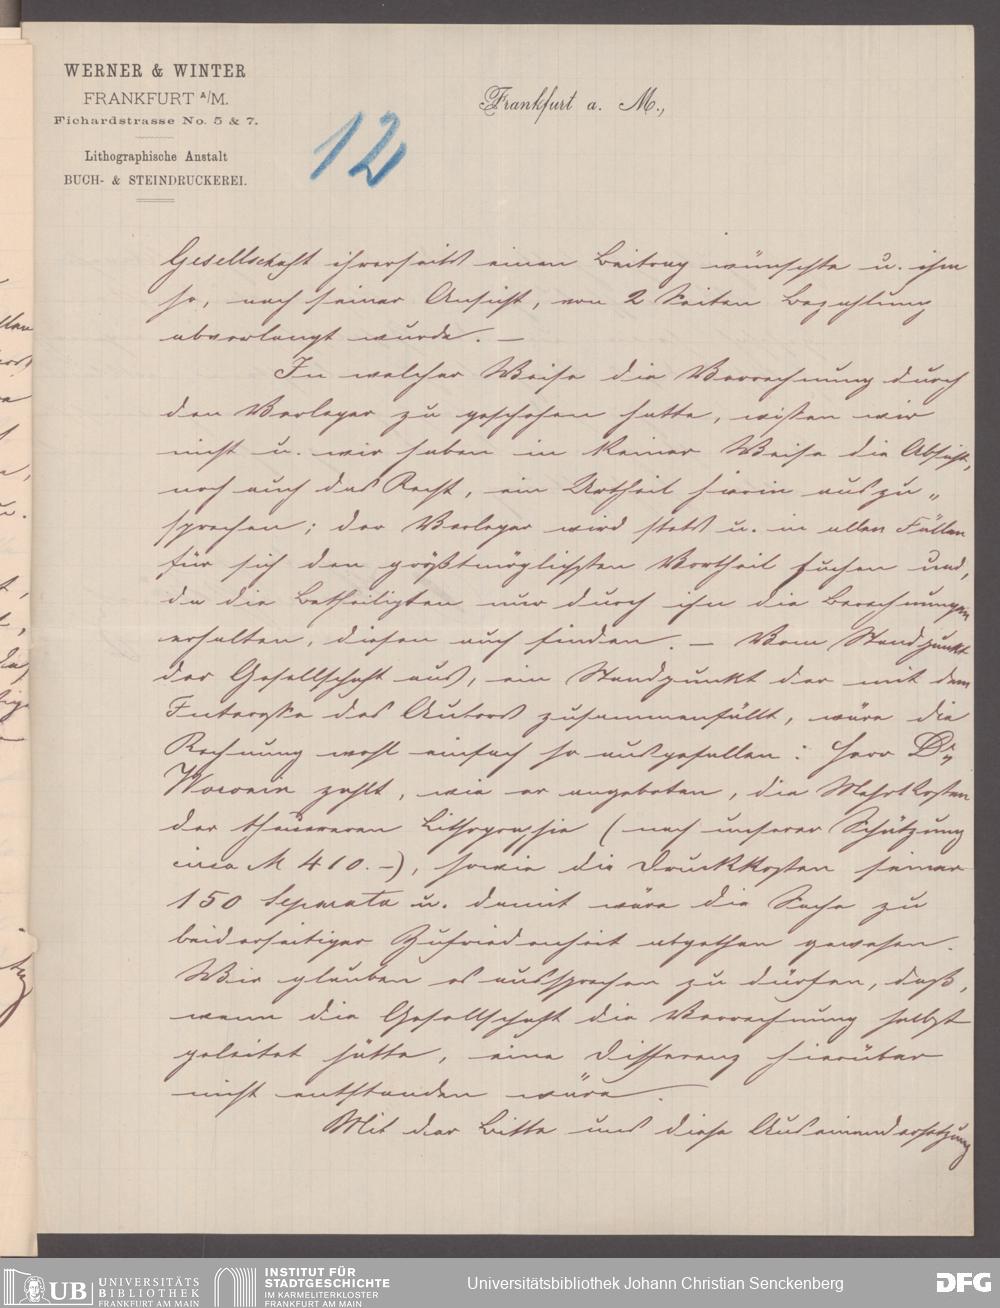 WERNER & WINTER
FRANKFURT A/M.
Fichardstrasse No. 5 & 7.
Lithographische Anstalt
BUCH- & STEINDRUCKEREI.
Frankfurt a. M.,
12
Gesellschaft ihrerseits einen Beitrag wünschte u. ihm
so, nach seiner Ansicht, von 2 Seiten Bezahlung
abverlangt wurde. —
In welcher Weise die Verrechnung durch
den Verleger zu geschehen hatte, wissen wir
nicht u. wir haben in keiner Weise die Absicht,
noch auch das Recht, ein Urtheil hierin auszu„
sprechen; der Verleger wird stets u. in allen Fällen
für sich den größtmöglichsten Vortheil suchen und,
da die Betheiligten nur durch ihn die Berechnungen
erhalten, diesen auch finden. — Vom Standpunkt
der Gesellschaft aus, ein Standpunkt der mit dem
Interesse des Autors zusammenfällt, wäre die
Rechnung wohl einfach so ausgefallen: Herr Dr
zahlt, wie er angeboten, die Mehrkosten
der theueren Lithographie (nach unserer Schätzung
circa M 410.–), sowie die Druckkosten seiner
150 Separata u. damit wäre die Sache zu
beiderseitiger Zufriedenheit abgethan gewesen.
Wir glauben es aussprechen zu dürfen, daß,
wenn die Gesellschaft die Verrechnung selbst
geleitet hätte, eine Differenz hierüber
nicht entstanden wäre.
Mit der Bitte uns diese Auseinandersetzung
UB UNIVERSITÄTS
BIBLIOTHEK
FRANKFURT AM MAIN
INSTITUT FÜR
STADTGESCHICHTE
IM KARMELITERKLOSTER
FRANKFURT AM MAIN
Universitätsbibliothek Johann Christian Senckenberg
DFG